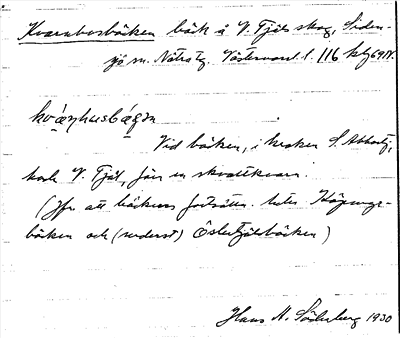 Kvarnhusbäcken bäck å V. Fjäls skog, Siden-
sjö sn. Nätra tg. Västernorrl. l. 116 kbl 69 IV.
kvà̱ṇhusbä̱gɔn
Vid bäcken, i kroken S. Abbortj,
hade V. Fjäl, förr en skvaltkvarn.
(Jfr. att bäckens fortsättn. heter Högungs-
bäcken och (nederst) Österfjälsbäcken)
Hans N. Söderberg 1930